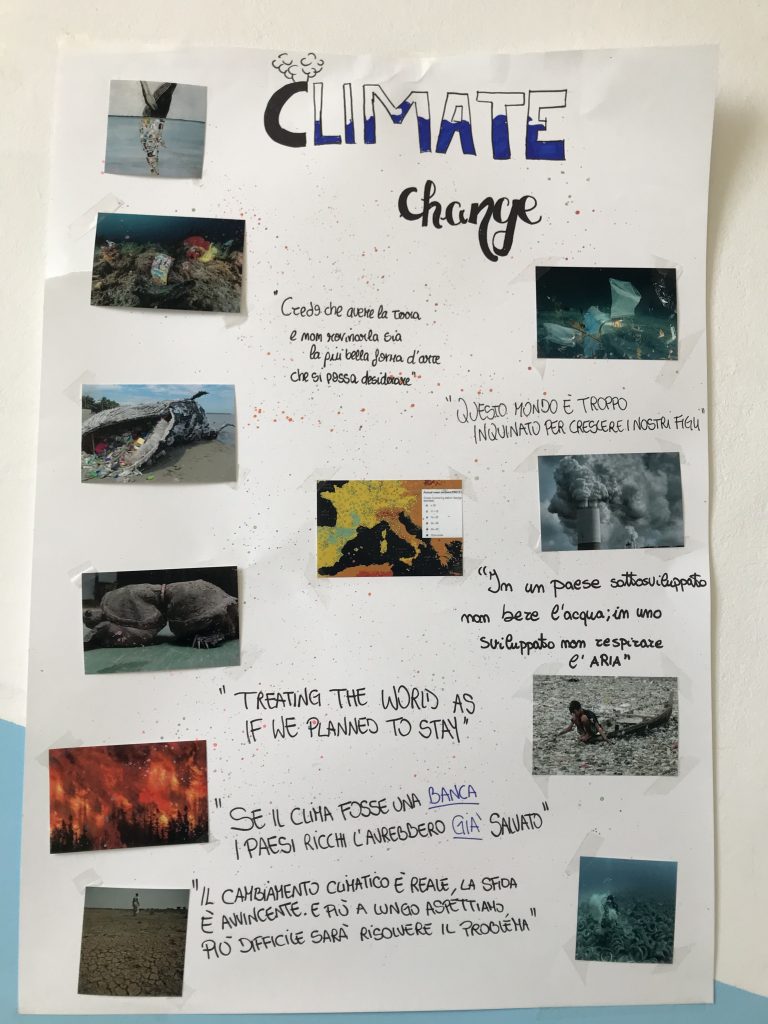 CLIMATE
change
"Credo che avere la terra
e non rovinarla sia
la più bella forma d'arte
che si possa desiderare"
"QUESTO MONDO È TROPPO
INQUINATO PER CRESCERE I NOSTRI FIGLI"
"In un paese sottosviluppato
non bere l'acqua; in uno
sviluppato non respirare
l'ARIA"
"TREATING THE WORLD AS
IF WE PLANNED TO STAY"
"SE IL CLIMA FOSSE UNA BANCA
I PAESI RICCHI L'AVREBBERO GIÀ SALVATO"
"IL CAMBIAMENTO CLIMATICO È REALE, LA SFIDA
È AVVINCENTE. E PIÙ A LUNGO ASPETTIAMO,
PIÙ DIFFICILE SARÀ RISOLVERE IL PROBLÉMA"